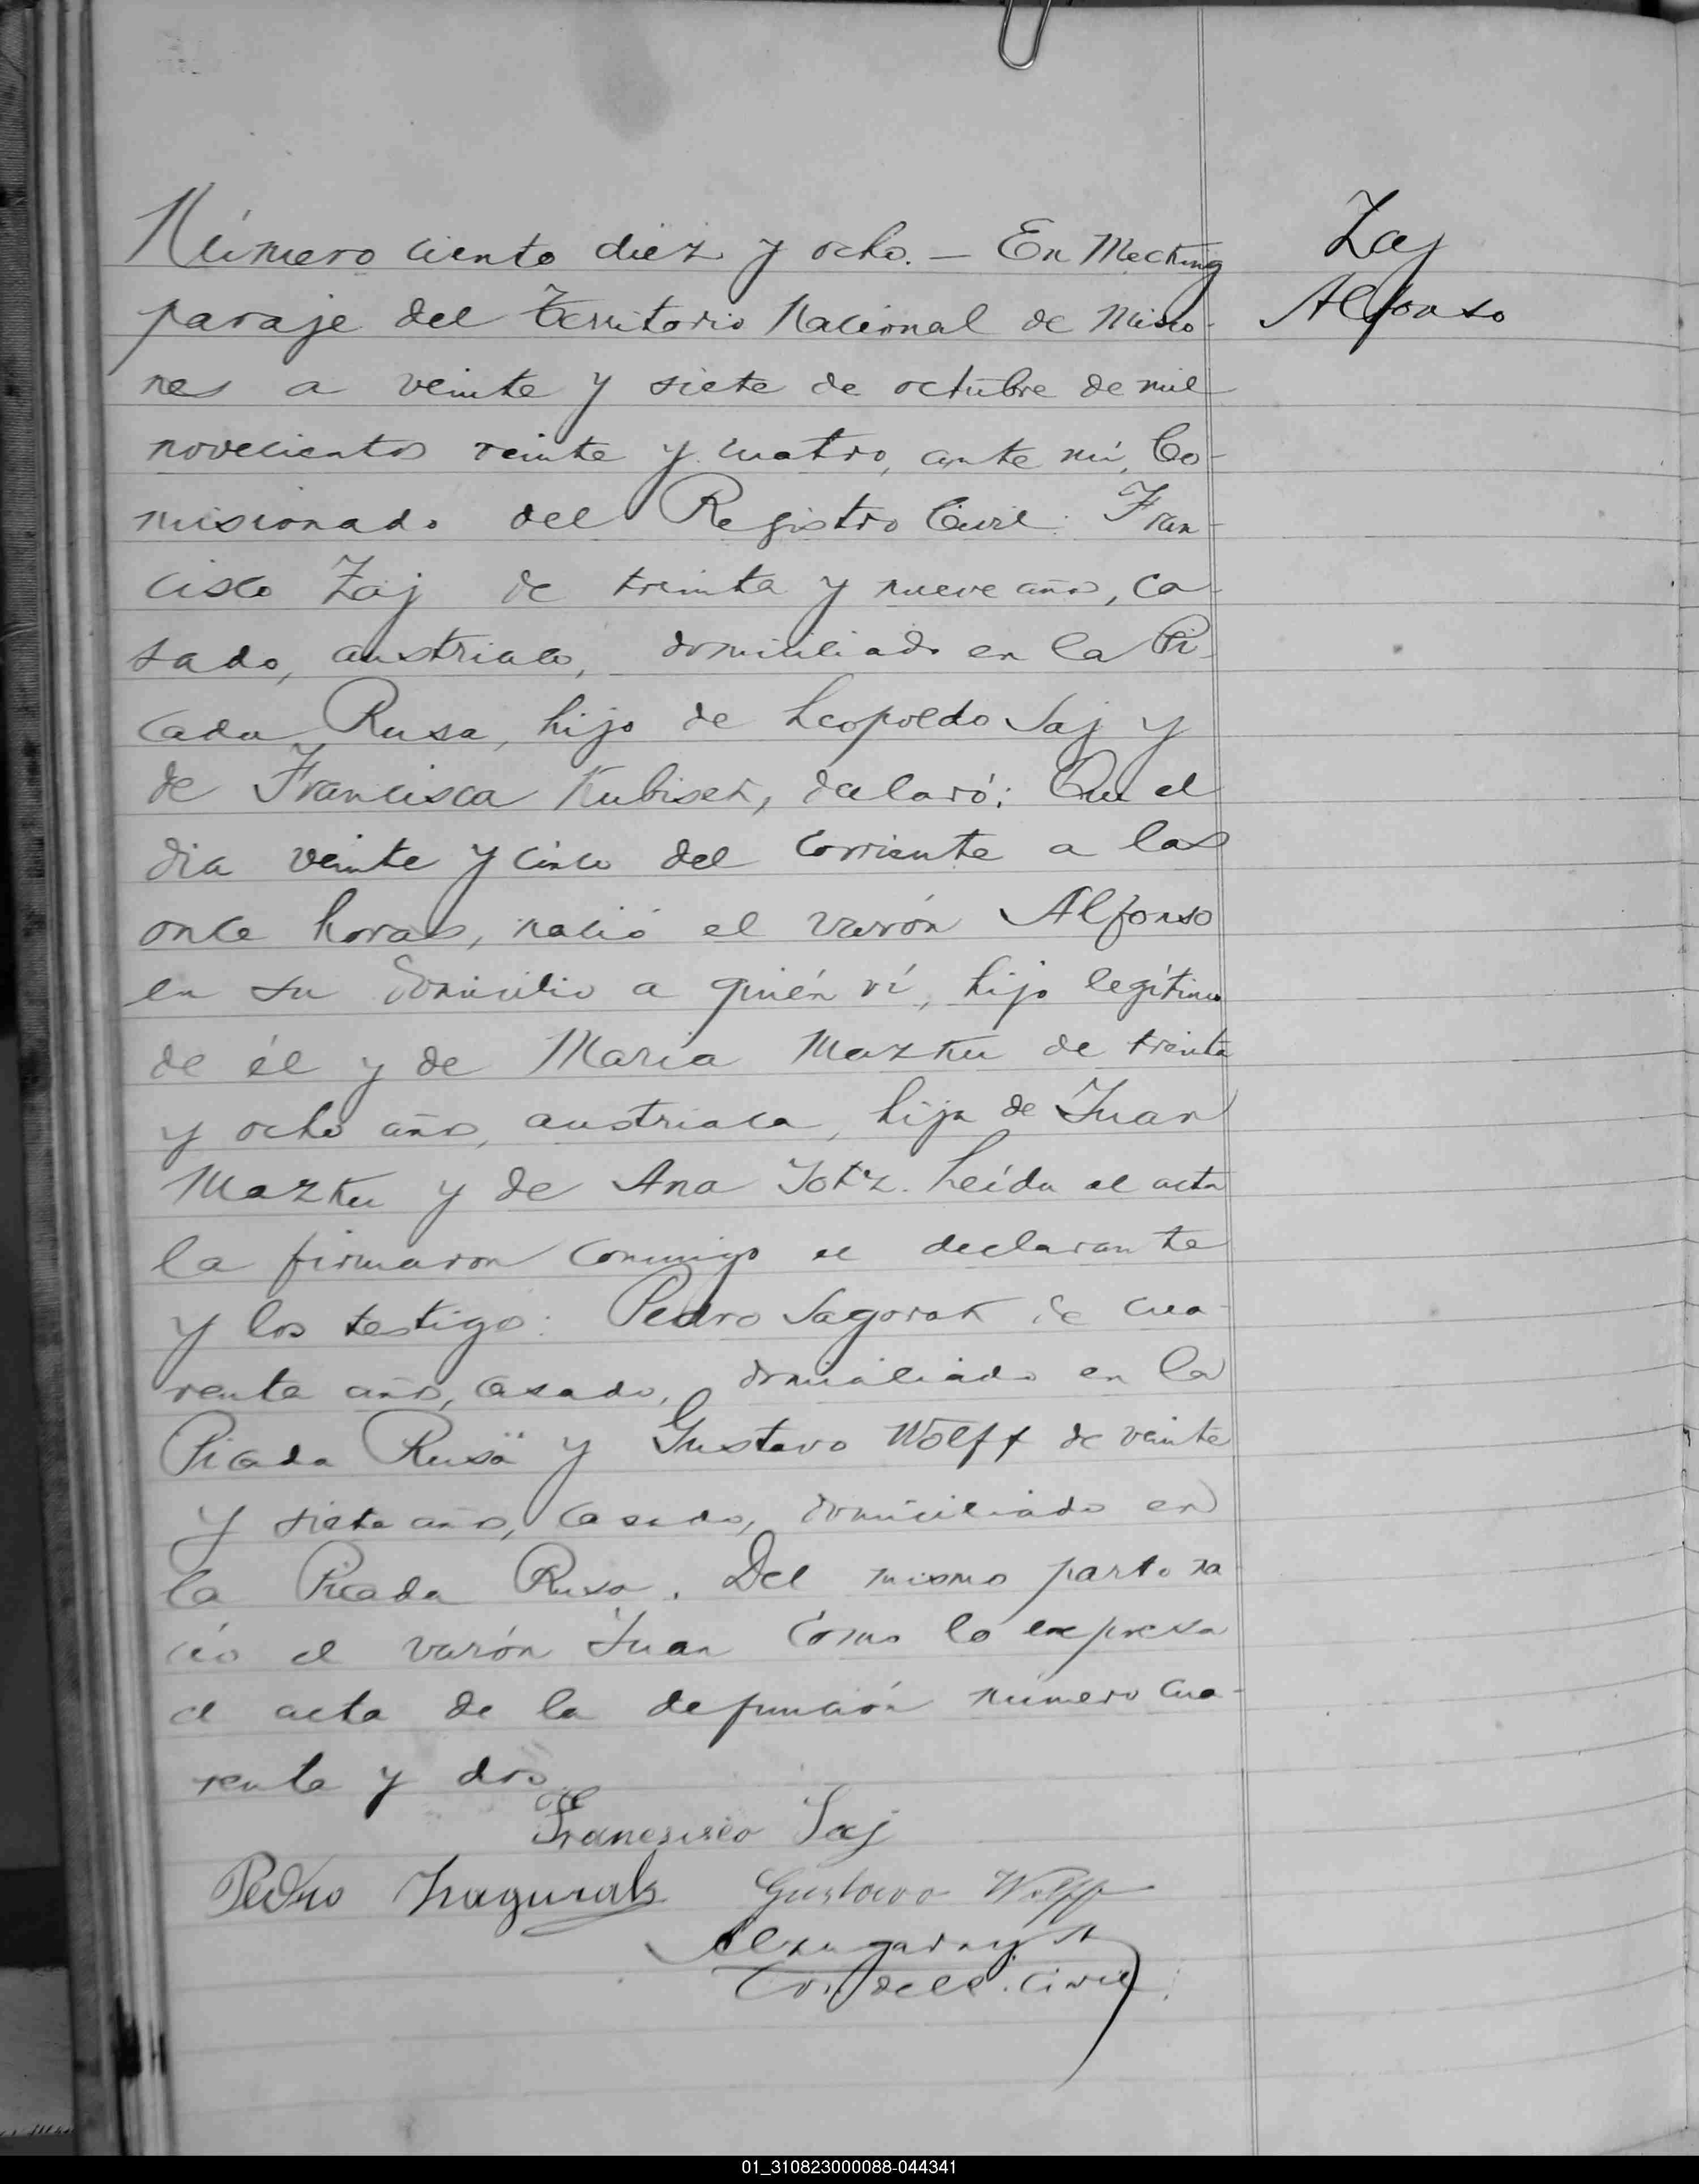 Número ciento diez y ocho. — En Mecking
paraje del Territorio Nacional de Misio-
nes a veinte y siete de octubre de mil
novecientos veinte y cuatro, ante mí, Co-
misionado del Registro Civil: Fran-
cisco Zaj de treinta y nueve años, ca-
sado, austriaco, domiciliado en la Pi-
cada Rusa, hijo de Leopoldo Saj y
de Francisca Kubisek, declaró: Que el
dia veinte y cinco del corriente a las
once horas, nació el varón Alfonso
en su domicilio a quién ví, hijo legítimo
de él y de Maria Mazku de treinta
y ocho años, austriaca, hija de Juan
Mazku y de Ana Totz. Leída el acta
la firmaron conmigo el declarante
y los testigos: Pedro Sagorak de cua-
renta años, casado, domiciliado en la
Picada Rusa y Gustavo Wolff de veinte
y siete años, casado, domiciliado en
la Picada Rusa. Del mismo parto na-
ció el varón Juan como lo expresa
el acta de la defunción número cua-
renta y dos
Francisco Saj
Pedro Zagurak Gustavo Wolff
Civil
Zaj
Alfonso
01_310823000088-044341